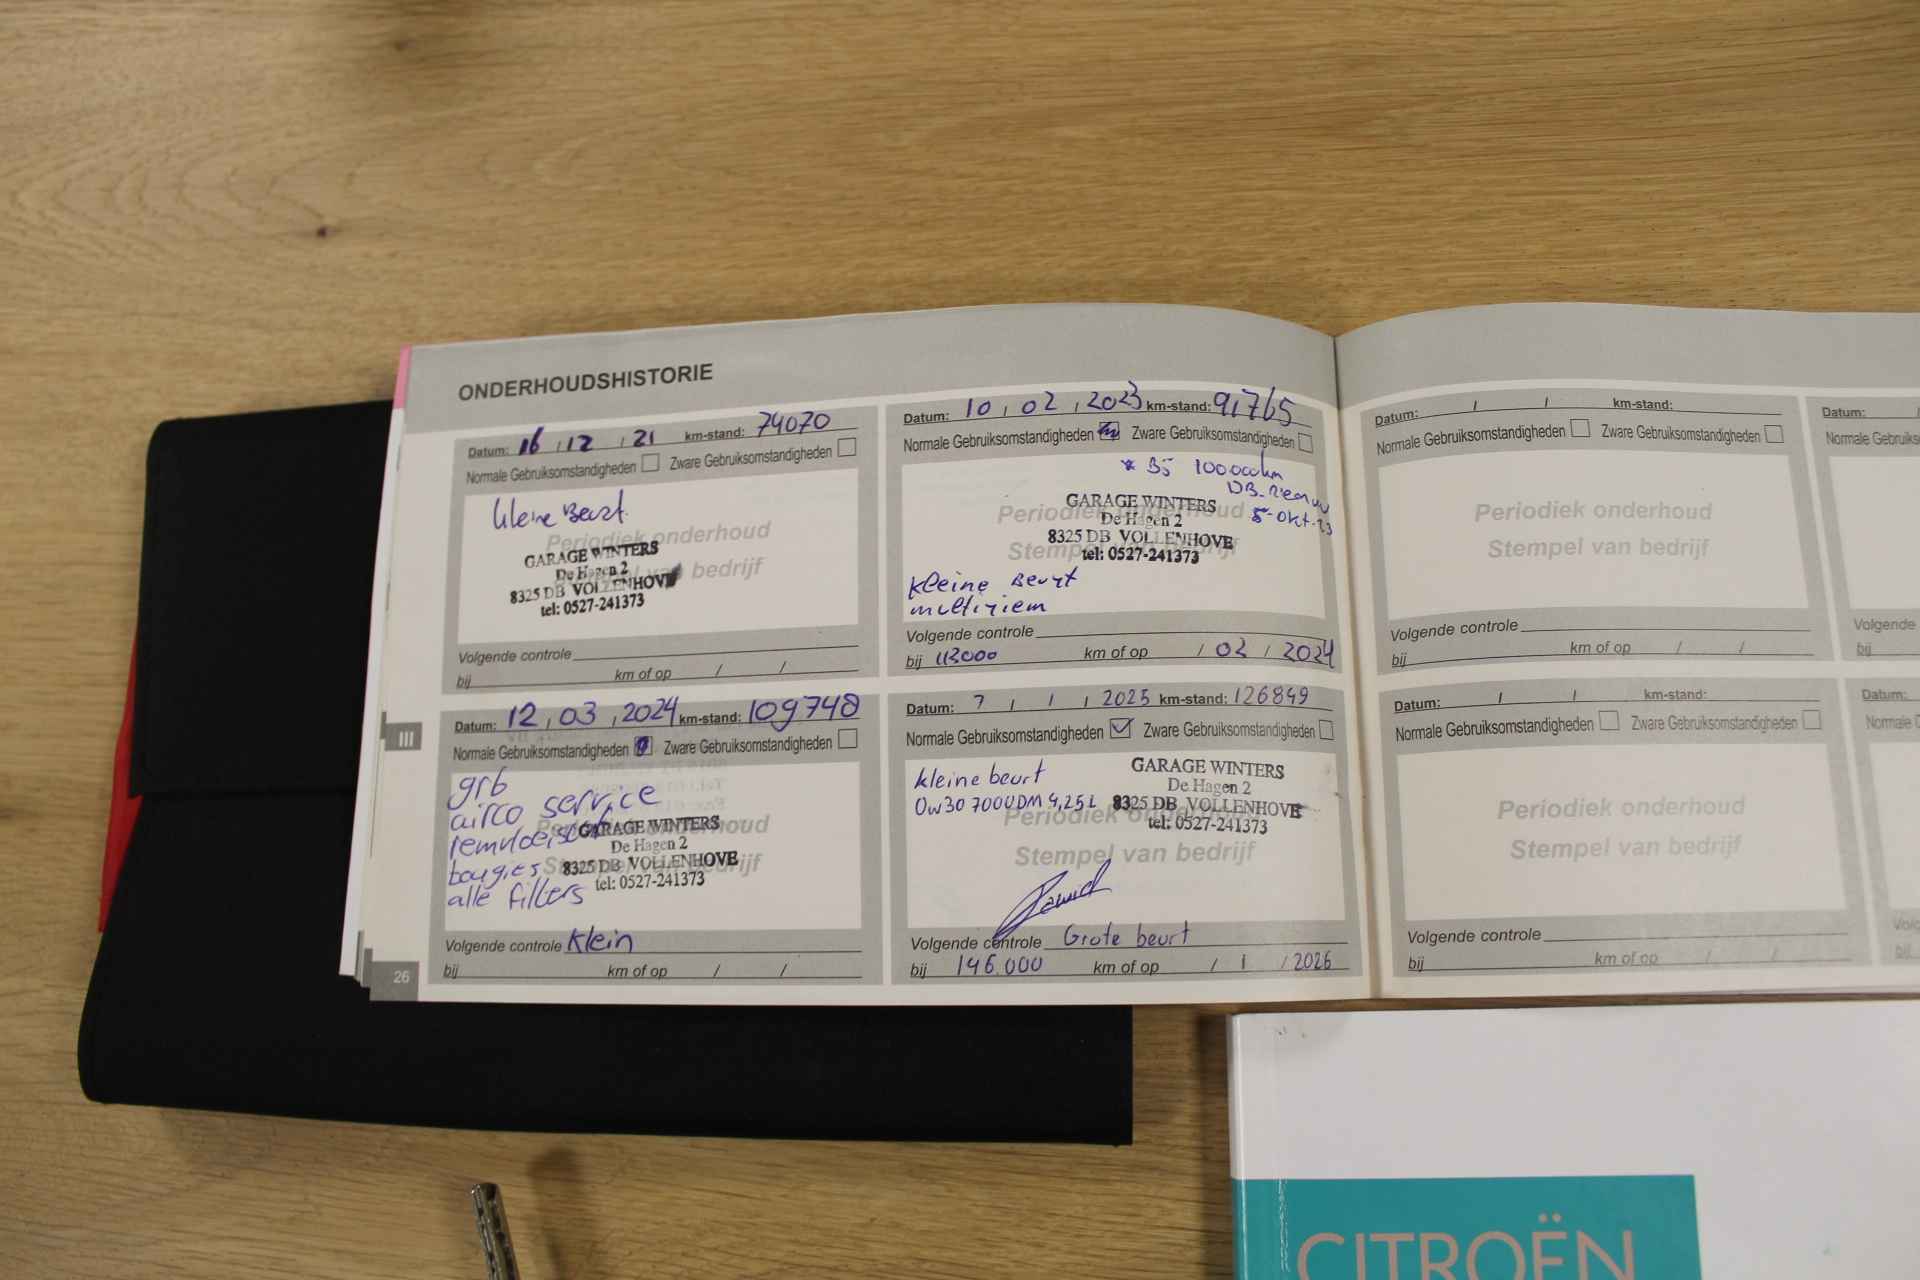 ONDERHOUDSHISTORIE
Datum: 16 / 12 / 21 km-stand: 74070
Normale Gebruiksomstandigheden Zware Gebruiksomstandigheden
kleine Beurt.
Periodiek onderhoud
Stempel van bedrijf
GARAGE WINTERS
De Hagen 2
8325 DB VOLLENHOVE
tel: 0527-241373
Volgende controle
bij km of op / /
Datum: 10 / 02 / 2023 km-stand: 91765
Normale Gebruiksomstandigheden Zware Gebruiksomstandigheden
* Bij 100.000km
DB-riem
5-okt-23
Periodiek onderhoud
Stempel van bedrijf
GARAGE WINTERS
De Hagen 2
8325 DB VOLLENHOVE
tel: 0527-241373
kleine Beurt
multiriem
Volgende controle
bij 112000 km of op / 02 / 2024
Datum: 12 / 03 / 2024 km-stand: 109748
Normale Gebruiksomstandigheden Zware Gebruiksomstandigheden
grb
airco service
remvloeistof
bougies
alle filters
Periodiek onderhoud
Stempel van bedrijf
GARAGE WINTERS
De Hagen 2
8325 DB VOLLENHOVE
tel: 0527-241373
Volgende controle Klein
bij km of op / /
Datum: 7 / 1 / 2025 km-stand: 126849
Normale Gebruiksomstandigheden Zware Gebruiksomstandigheden
kleine beurt
0w30 7000DM 4,25L
Periodiek onderhoud
Stempel van bedrijf
GARAGE WINTERS
De Hagen 2
8325 DB VOLLENHOVE
tel: 0527-241373
Volgende controle Grote beurt
bij 146.000 km of op / 1 / 2026
III
26
Datum: / / km-stand:
Normale Gebruiksomstandigheden Zware Gebruiksomstandigheden
Periodiek onderhoud
Stempel van bedrijf
Volgende controle
bij km of op / /
Datum: / / km-stand:
Normale Gebruiksomstandigheden Zware Gebruiksomstandigheden
Periodiek onderhoud
Stempel van bedrijf
Volgende controle
bij km of op / /
Datum:
Normale Gebruiks
Volgende
bij
Datum:
Normale
bij
CITROËN